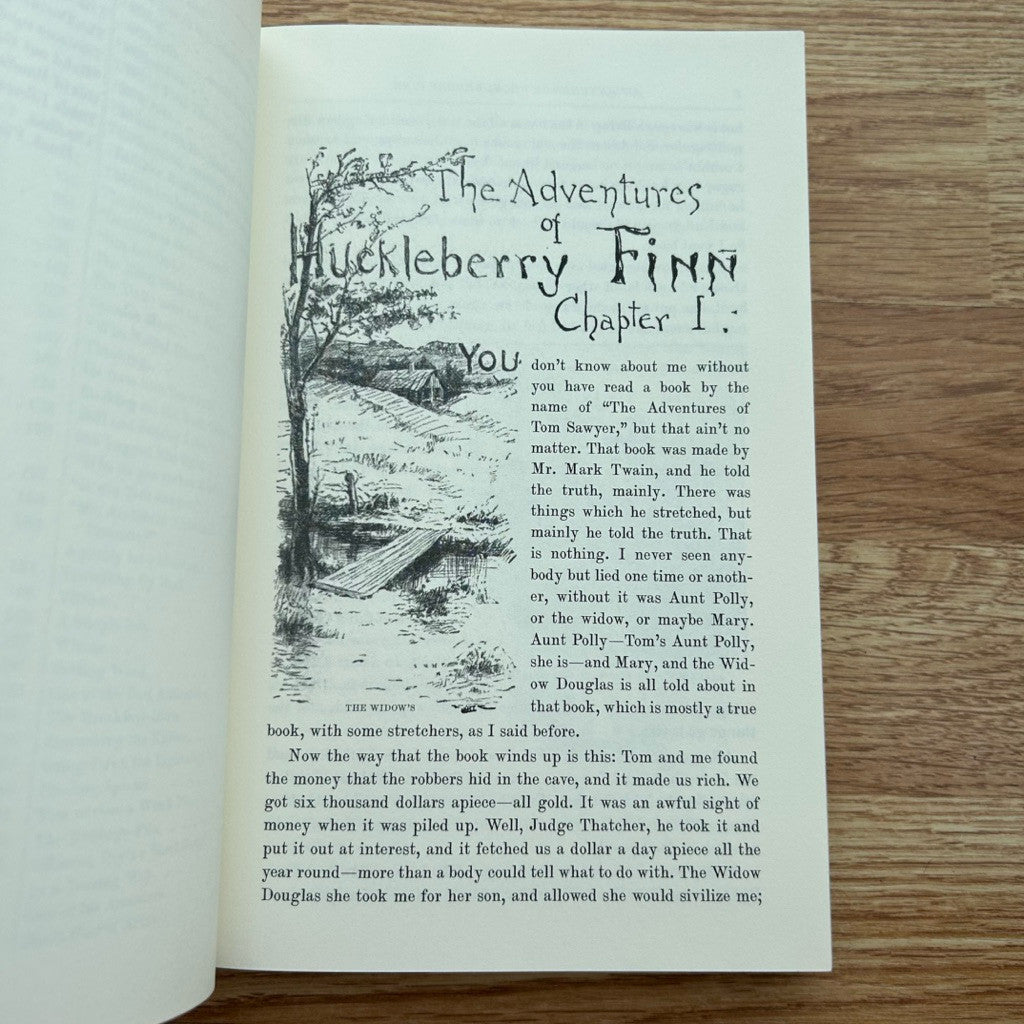 The Adventures
of
Huckleberry Finn
Chapter I.
YOU don't know about me without
you have read a book by the
name of “The Adventures of
Tom Sawyer,” but that ain't no
matter. That book was made by
Mr. Mark Twain, and he told
the truth, mainly. There was
things which he stretched, but
mainly he told the truth. That
is nothing. I never seen any-
body but lied one time or anoth-
er, without it was Aunt Polly,
or the widow, or maybe Mary.
Aunt Polly—Tom's Aunt Polly,
she is—and Mary, and the Wid-
ow Douglas is all told about in
that book, which is mostly a true
THE WIDOW'S
book, with some stretchers, as I said before.
Now the way that the book winds up is this: Tom and me found
the money that the robbers hid in the cave, and it made us rich. We
got six thousand dollars apiece—all gold. It was an awful sight of
money when it was piled up. Well, Judge Thatcher, he took it and
put it out at interest, and it fetched us a dollar a day apiece all the
year round—more than a body could tell what to do with. The Widow
Douglas she took me for her son, and allowed she would sivilize me;